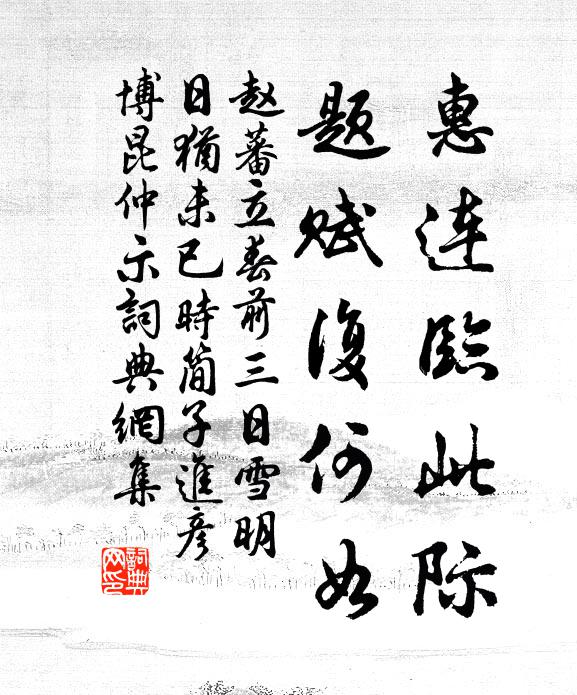 惠连临此际
题赋复何如
赵蕃立春前三日雪明
日犹未已時简子進彦
博昆仲示詞典網集
詞典网印